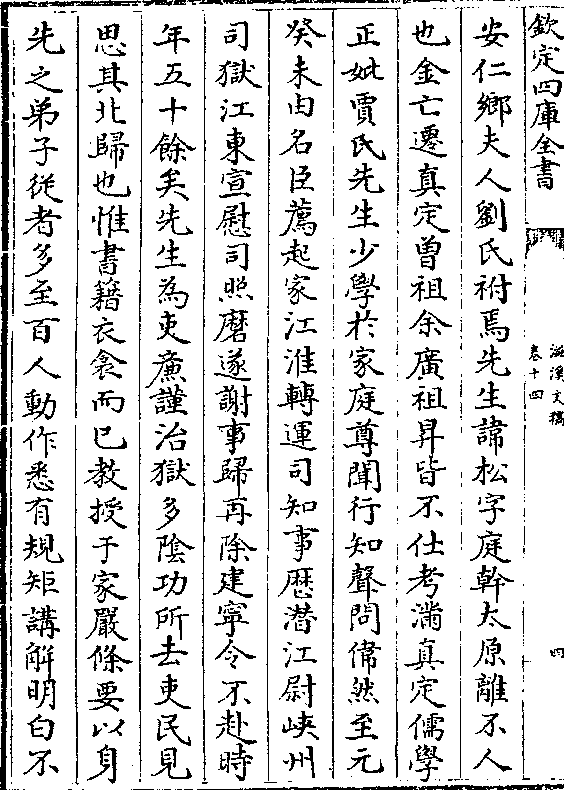 欽定四庫全書
滋溪文稿
卷十四
四
安仁鄉夫人劉氏祔焉先生諱松字庭幹太原離石人
也金亡遷真定曾祖余廣祖昇皆不仕考滿真定儒學
正妣賈氏先生少學於家庭尊聞行知聲問偉然至元
癸未由名臣薦起家江淮轉運司知事歴潛江尉峽州
司獄江東宣慰司照磨遂謝事歸再除建寧令不赴時
年五十餘矣先生為吏㢘謹治獄多陰功所去吏民見
思其北歸也惟書籍衣衾而已教授于家嚴條要以身
先之弟子從者多至百人動作悉有規矩講解明白不